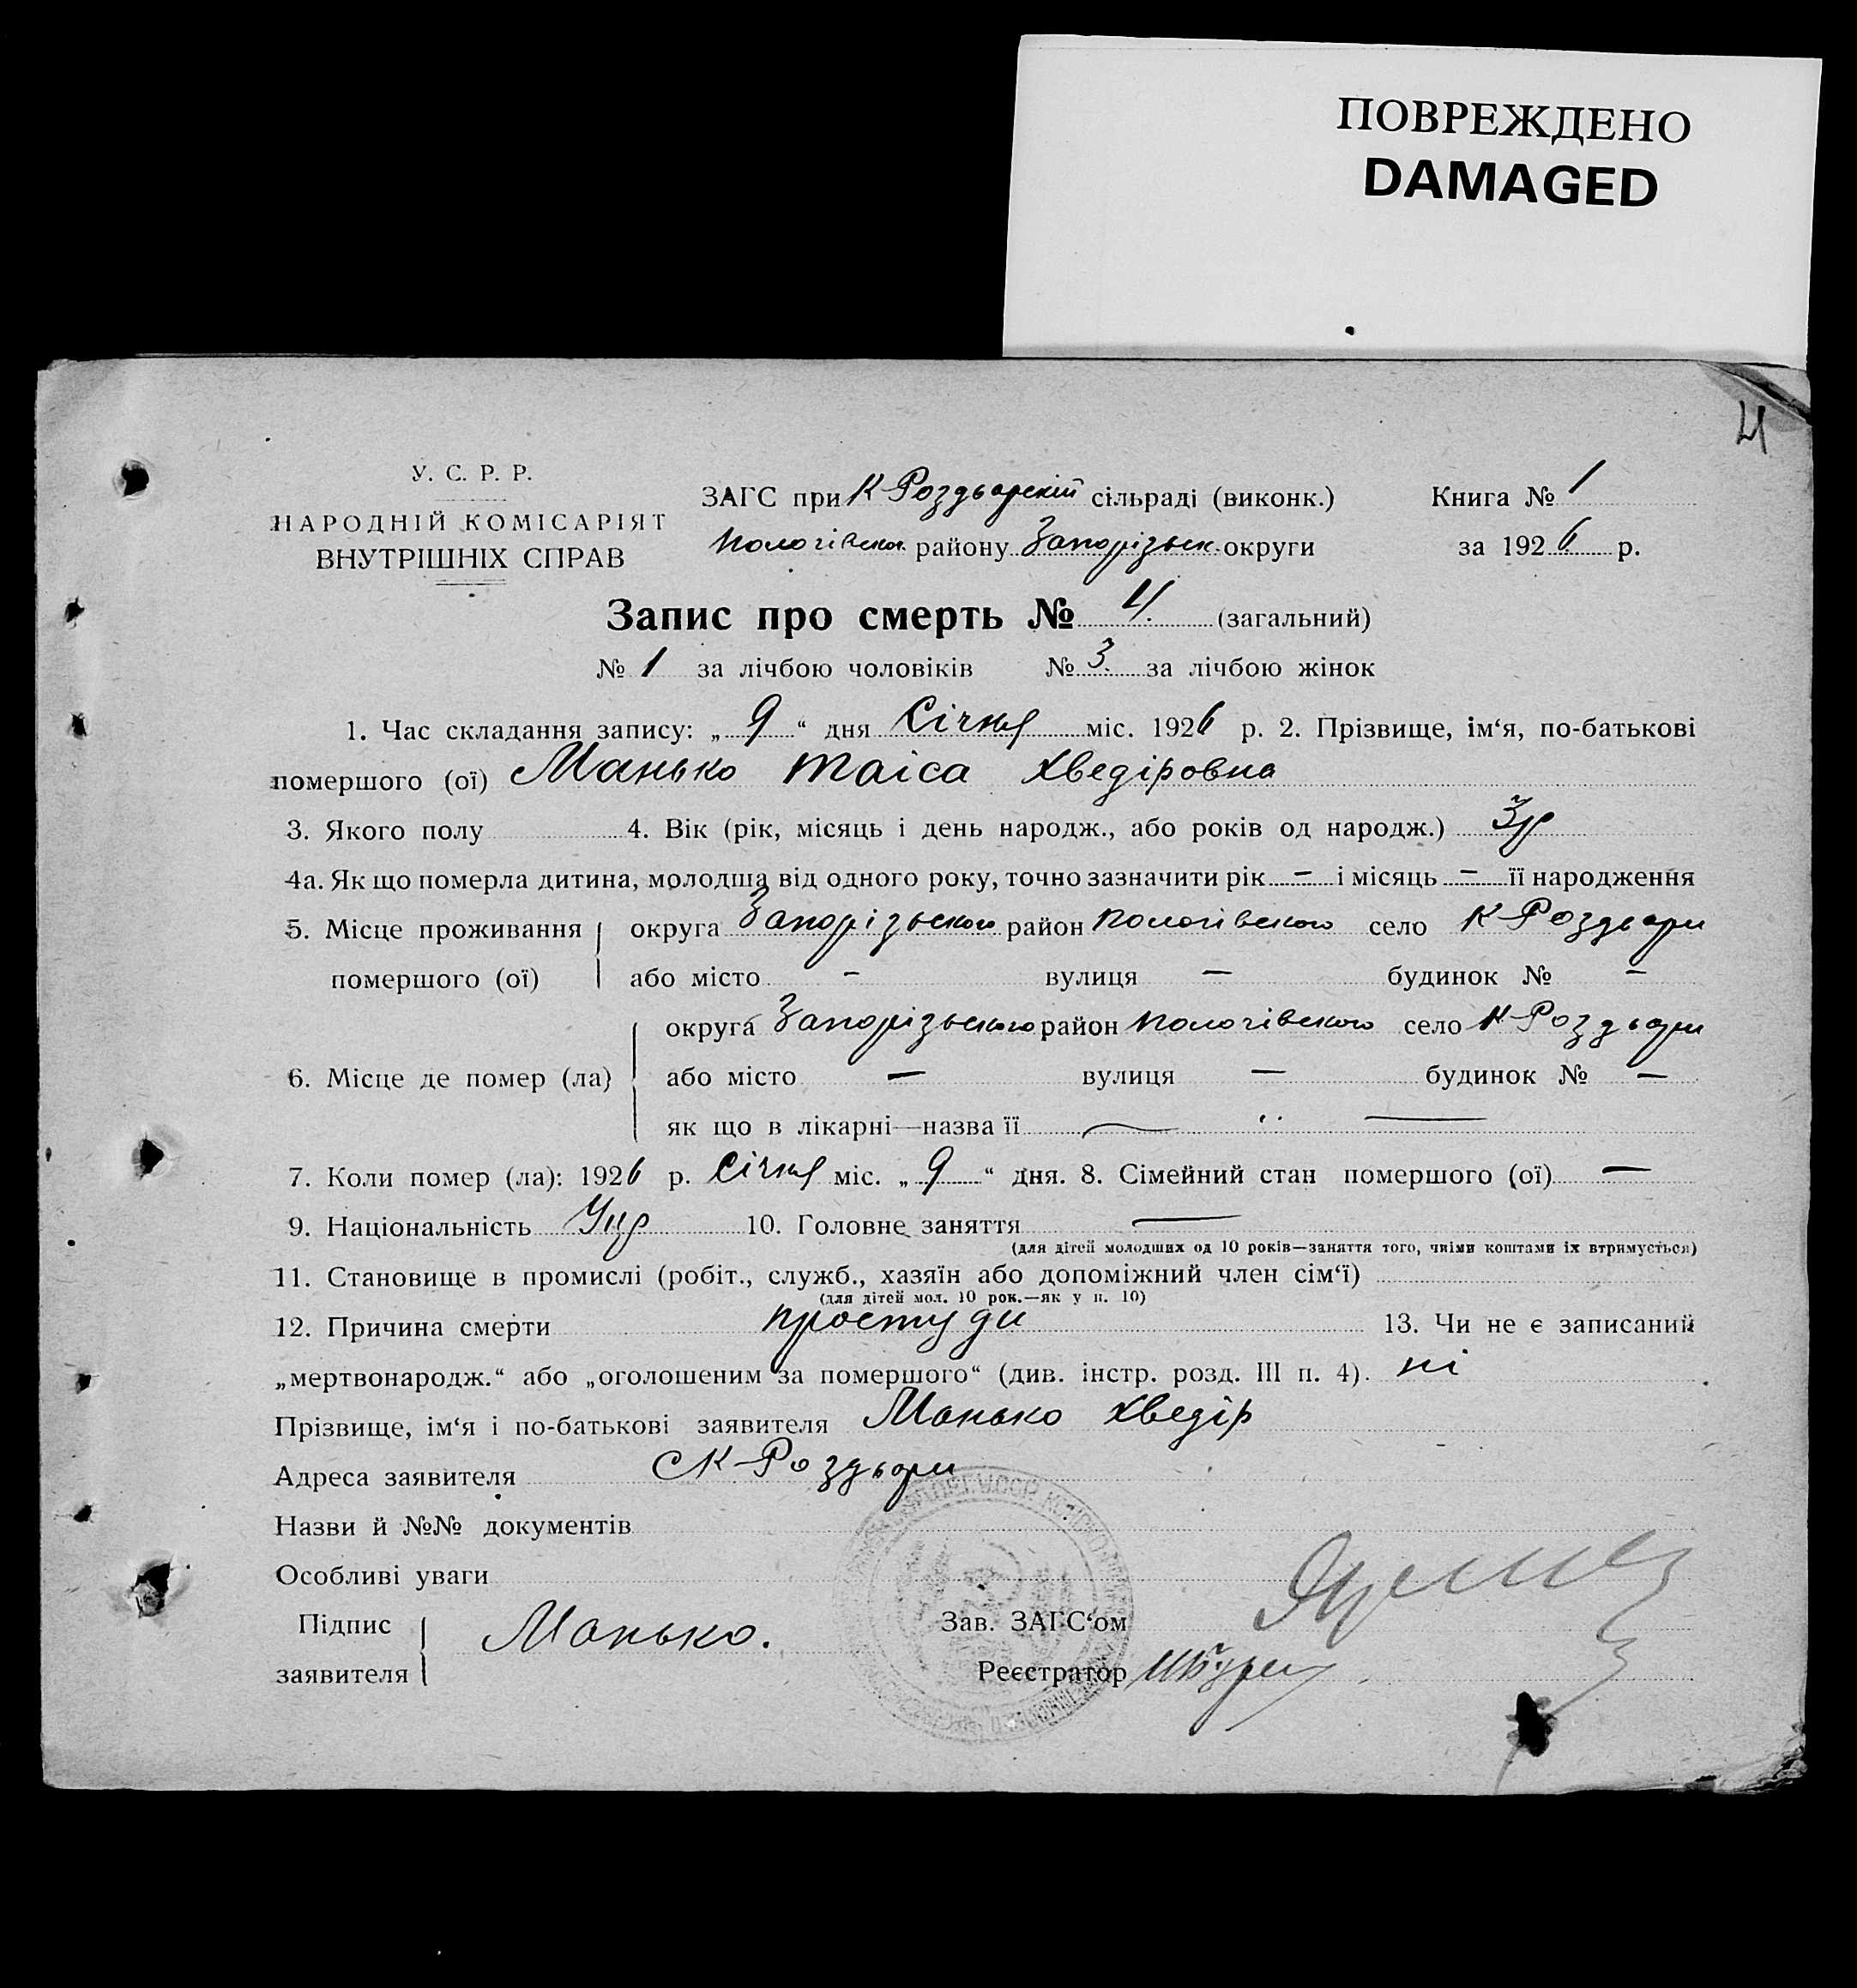 ПОВРЕЖДЕНО
DAMAGED
4
У. С. Р. Р.
НАРОДНІЙ КОМІСАРІЯТ
ВНУТРІШНІХ СПРАВ
ЗАГС при К-Роздьорскій сільраді (виконк.) Книга № 1
Пологівськ. району Запорізьк. округи за 1926 р.
Запис про смерть № 4. (загальний)
№ 1 за лічбою чоловіків № 3. за лічбою жінок
1. Час складання запису: „ 9 “ дня Січня міс. 1926 р. 2. Прізвище, ім‘я, по-батькові
помершого (ої) Манько Таіса Хведіровна
3. Якого полу 4. Вік (рік, місяць і день народж., або років од народж.) 3 р
4а. Як що померла дитина, молодша від одного року, точно зазначити рік – і місяць – її народження
5. Місце проживання округа Запорізького район Пологівського село К-Роздьори
помершого (ої) або місто – вулиця – будинок № –
округа Запорізького район Пологівського село К-Роздьори
6. Місце де помер (ла) або місто – вулиця – будинок № –
як що в лікарні—назва її — „ —
7. Коли помер (ла): 1926 р. Січня міс. „ 9 “ дня. 8. Сімейний стан помершого (ої) –
9. Національність Укр 10. Головне заняття —
(для дітей молодших од 10 років—заняття того, чиїми коштами їх втримується)
11. Становище в промислі (робіт., служб., хазяїн або допоміжний член сім‘ї)
(для дітей мол. 10 рок.—як у п. 10)
12. Причина смерти простуди 13. Чи не є записаний
„мертвонародж.“ або „оголошеним за помершого“ (див. інстр. розд. III п. 4). ні
Прізвище, ім‘я і по-батькові заявителя Манько Хведір
Адреса заявителя С К-Роздьори
Назви й №№ документів
Особливі уваги
Підпис
заявителя Манько.
Зав. ЗАГС‘ом
Реєстратор